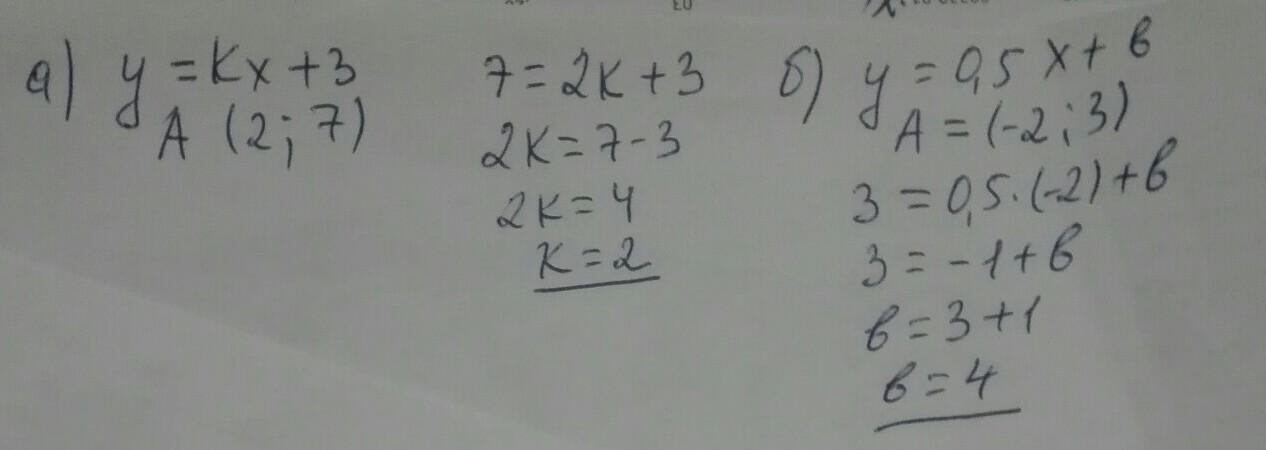 а) y = kx + 3
A (2; 7)
7 = 2k + 3
2k = 7 - 3
2k = 4
k = 2
б) y = 0,5 x + в
A = (-2; 3)
3 = 0,5 · (-2) + в
3 = -1 + в
в = 3 + 1
в = 4